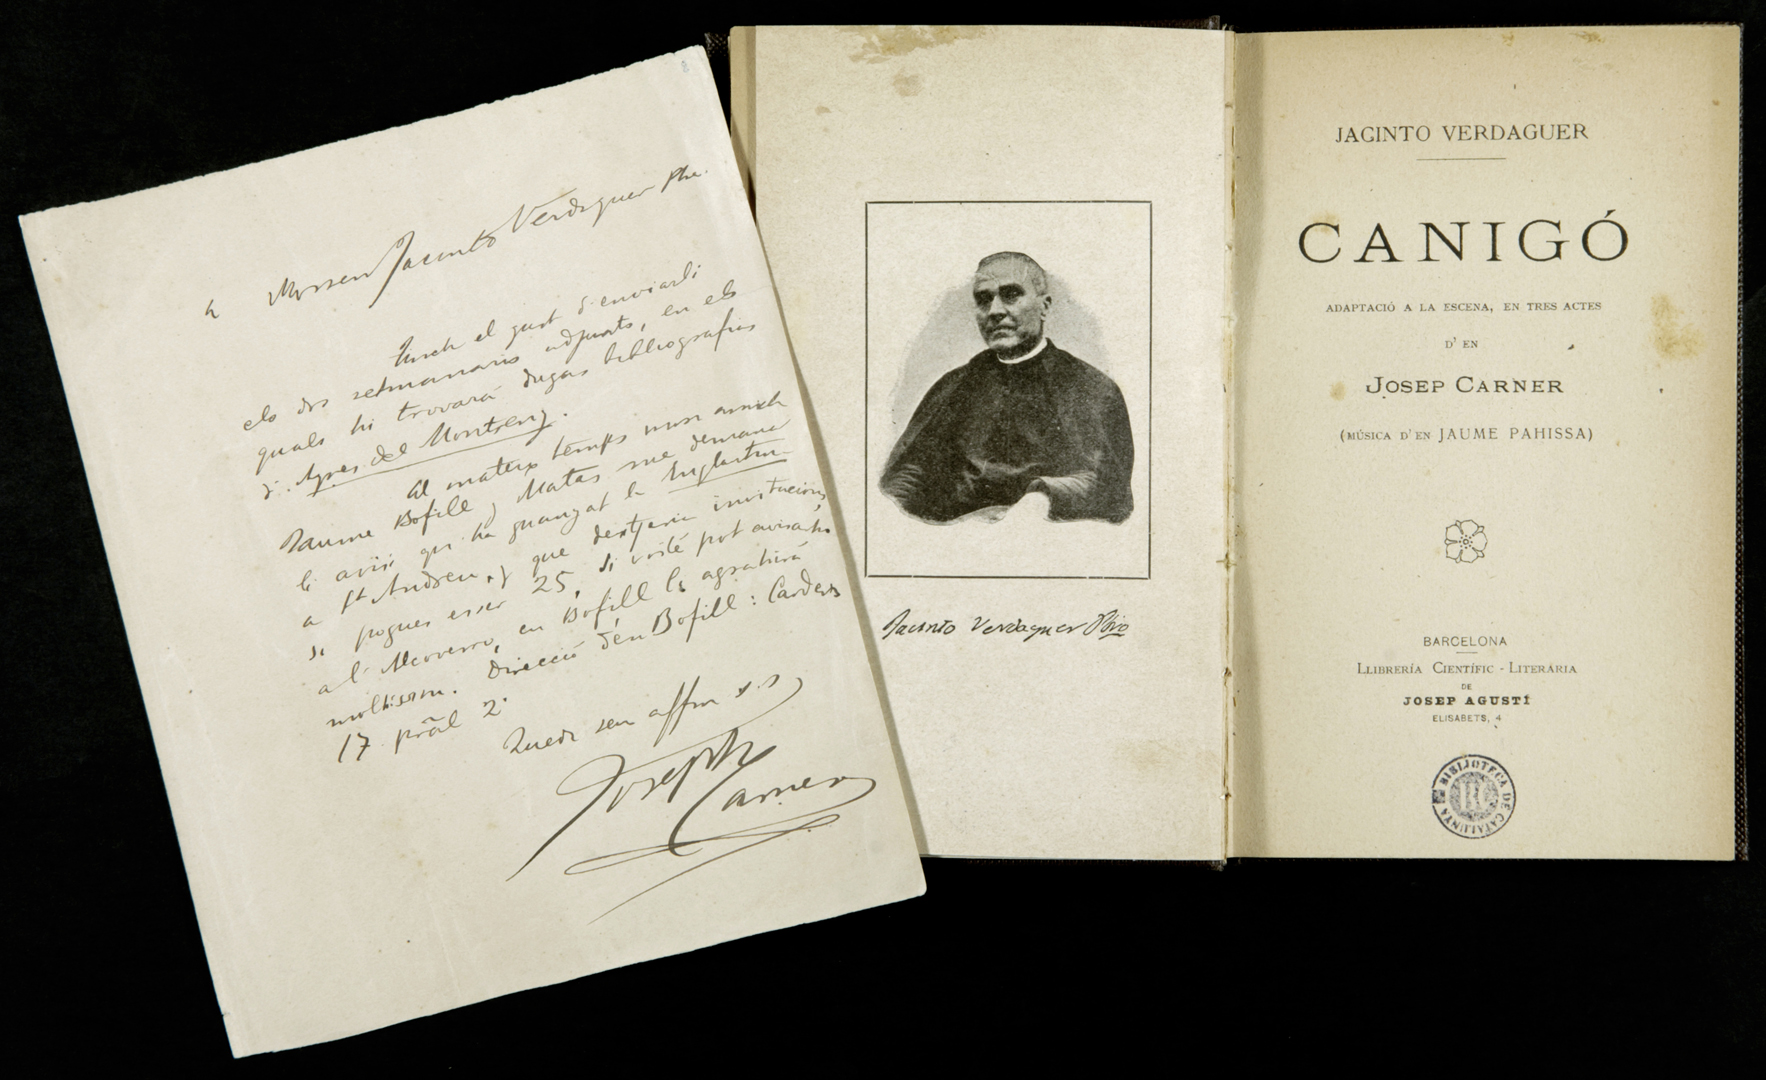 8
A Mossen Jacinto Verdaguer Pbre.
Tinch el gust d'enviarli
els dos setmanaris adjunts, en els
quals hi trovará dugas bibliografias
d'Ayres del Montseny.
Al mateix temps mon amich
Jaume Bofill y Matas me demana
li avisi que ha guanyat la Englantina
a St Andreu, y que desitjaria invitacions,
si pogues esser 25, si vosté pot avisarho
a l'Alcoverro, en Bofill li agrahirá
moltissim. Direcció d'en Bofill: Carders
17 pral 2ª
Quedo seu affm s.s.
Joseph
Carner
Jacinto Verdaguer Pbro
JACINTO VERDAGUER
CANIGÓ
ADAPTACIÓ A LA ESCENA, EN TRES ACTES
D' EN
JOSEP CARNER
(MÚSICA D' EN JAUME PAHISSA)
BARCELONA
LLIBRERÍA CIENTÍFIC - LITERARIA
DE
JOSEP AGUSTÍ
ELISABETS, 4
BIBLIOTECA DE CATALUNYA